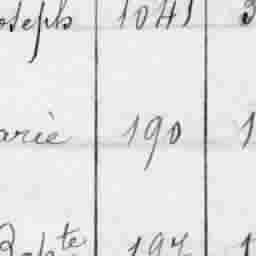 oseph 1041 3
arie 190 1
Bapte 197 1